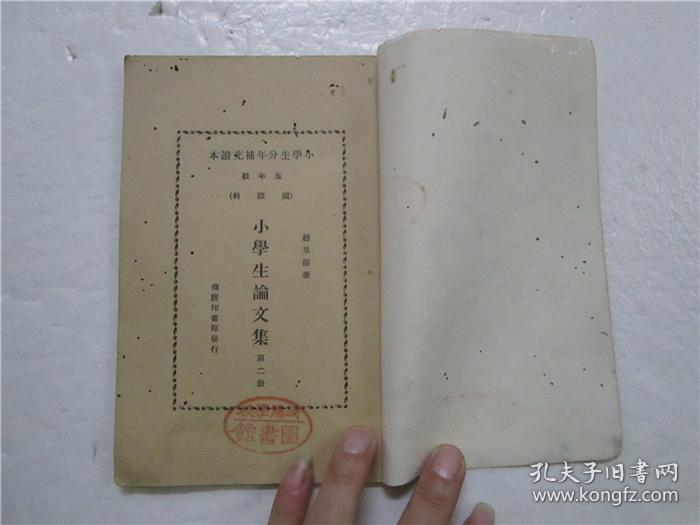 本讀充補年分生學小
級年五
(科語國)
趙景源著
小學生論文集 第二册
商務印書館發行
圖書館
孔夫子旧书网
www.kongfz.com